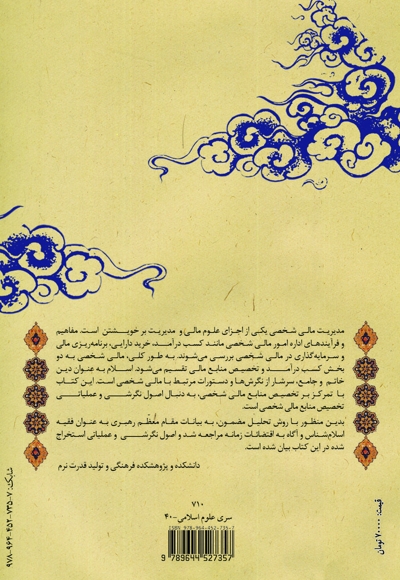 مدیریت مالی شخصی یکی از اجزای علوم مالی و مدیریت بر خویشتن است. مفاهیم
و فرآیندهای اداره امور مالی شخصی مانند کسب درآمد، خرید دارایی، برنامه‌ریزی مالی
و سرمایه‌گذاری در مالی شخصی بررسی می‌شوند. به طور کلی، مالی شخصی به دو
بخش کسب درآمد و تخصیص منابع مالی تقسیم می‌شود. اسلام به عنوان دین
خاتم و جامع، سرشار از نگرش‌ها و دستورات مرتبط با مالی شخصی است. این کتاب
با تمرکز بر تخصیص منابع مالی شخصی، به دنبال اصول نگرشی و عملیاتی
تخصیص منابع مالی شخصی است.
بدین منظور با روش تحلیل مضمون، به بیانات مقام معُظّم رهبری به عنوان فقیه
اسلام‌شناس و آگاه به اقتضائات زمانه مراجعه شد و اصول نگرشی و عملیاتی استخراج
شده در این کتاب بیان شده است.
دانشکده و پژوهشکده فرهنگی و تولید قدرت نرم
۷۱۰
سری علوم اسلامی-۴۰
ISBN: 978-964-452-735-7
9 789644 527357
شابک: ۷-۷۳۵-۴۵۲-۹۶۴-۹۷۸
قیمت: ۷۰۰۰۰ تومان